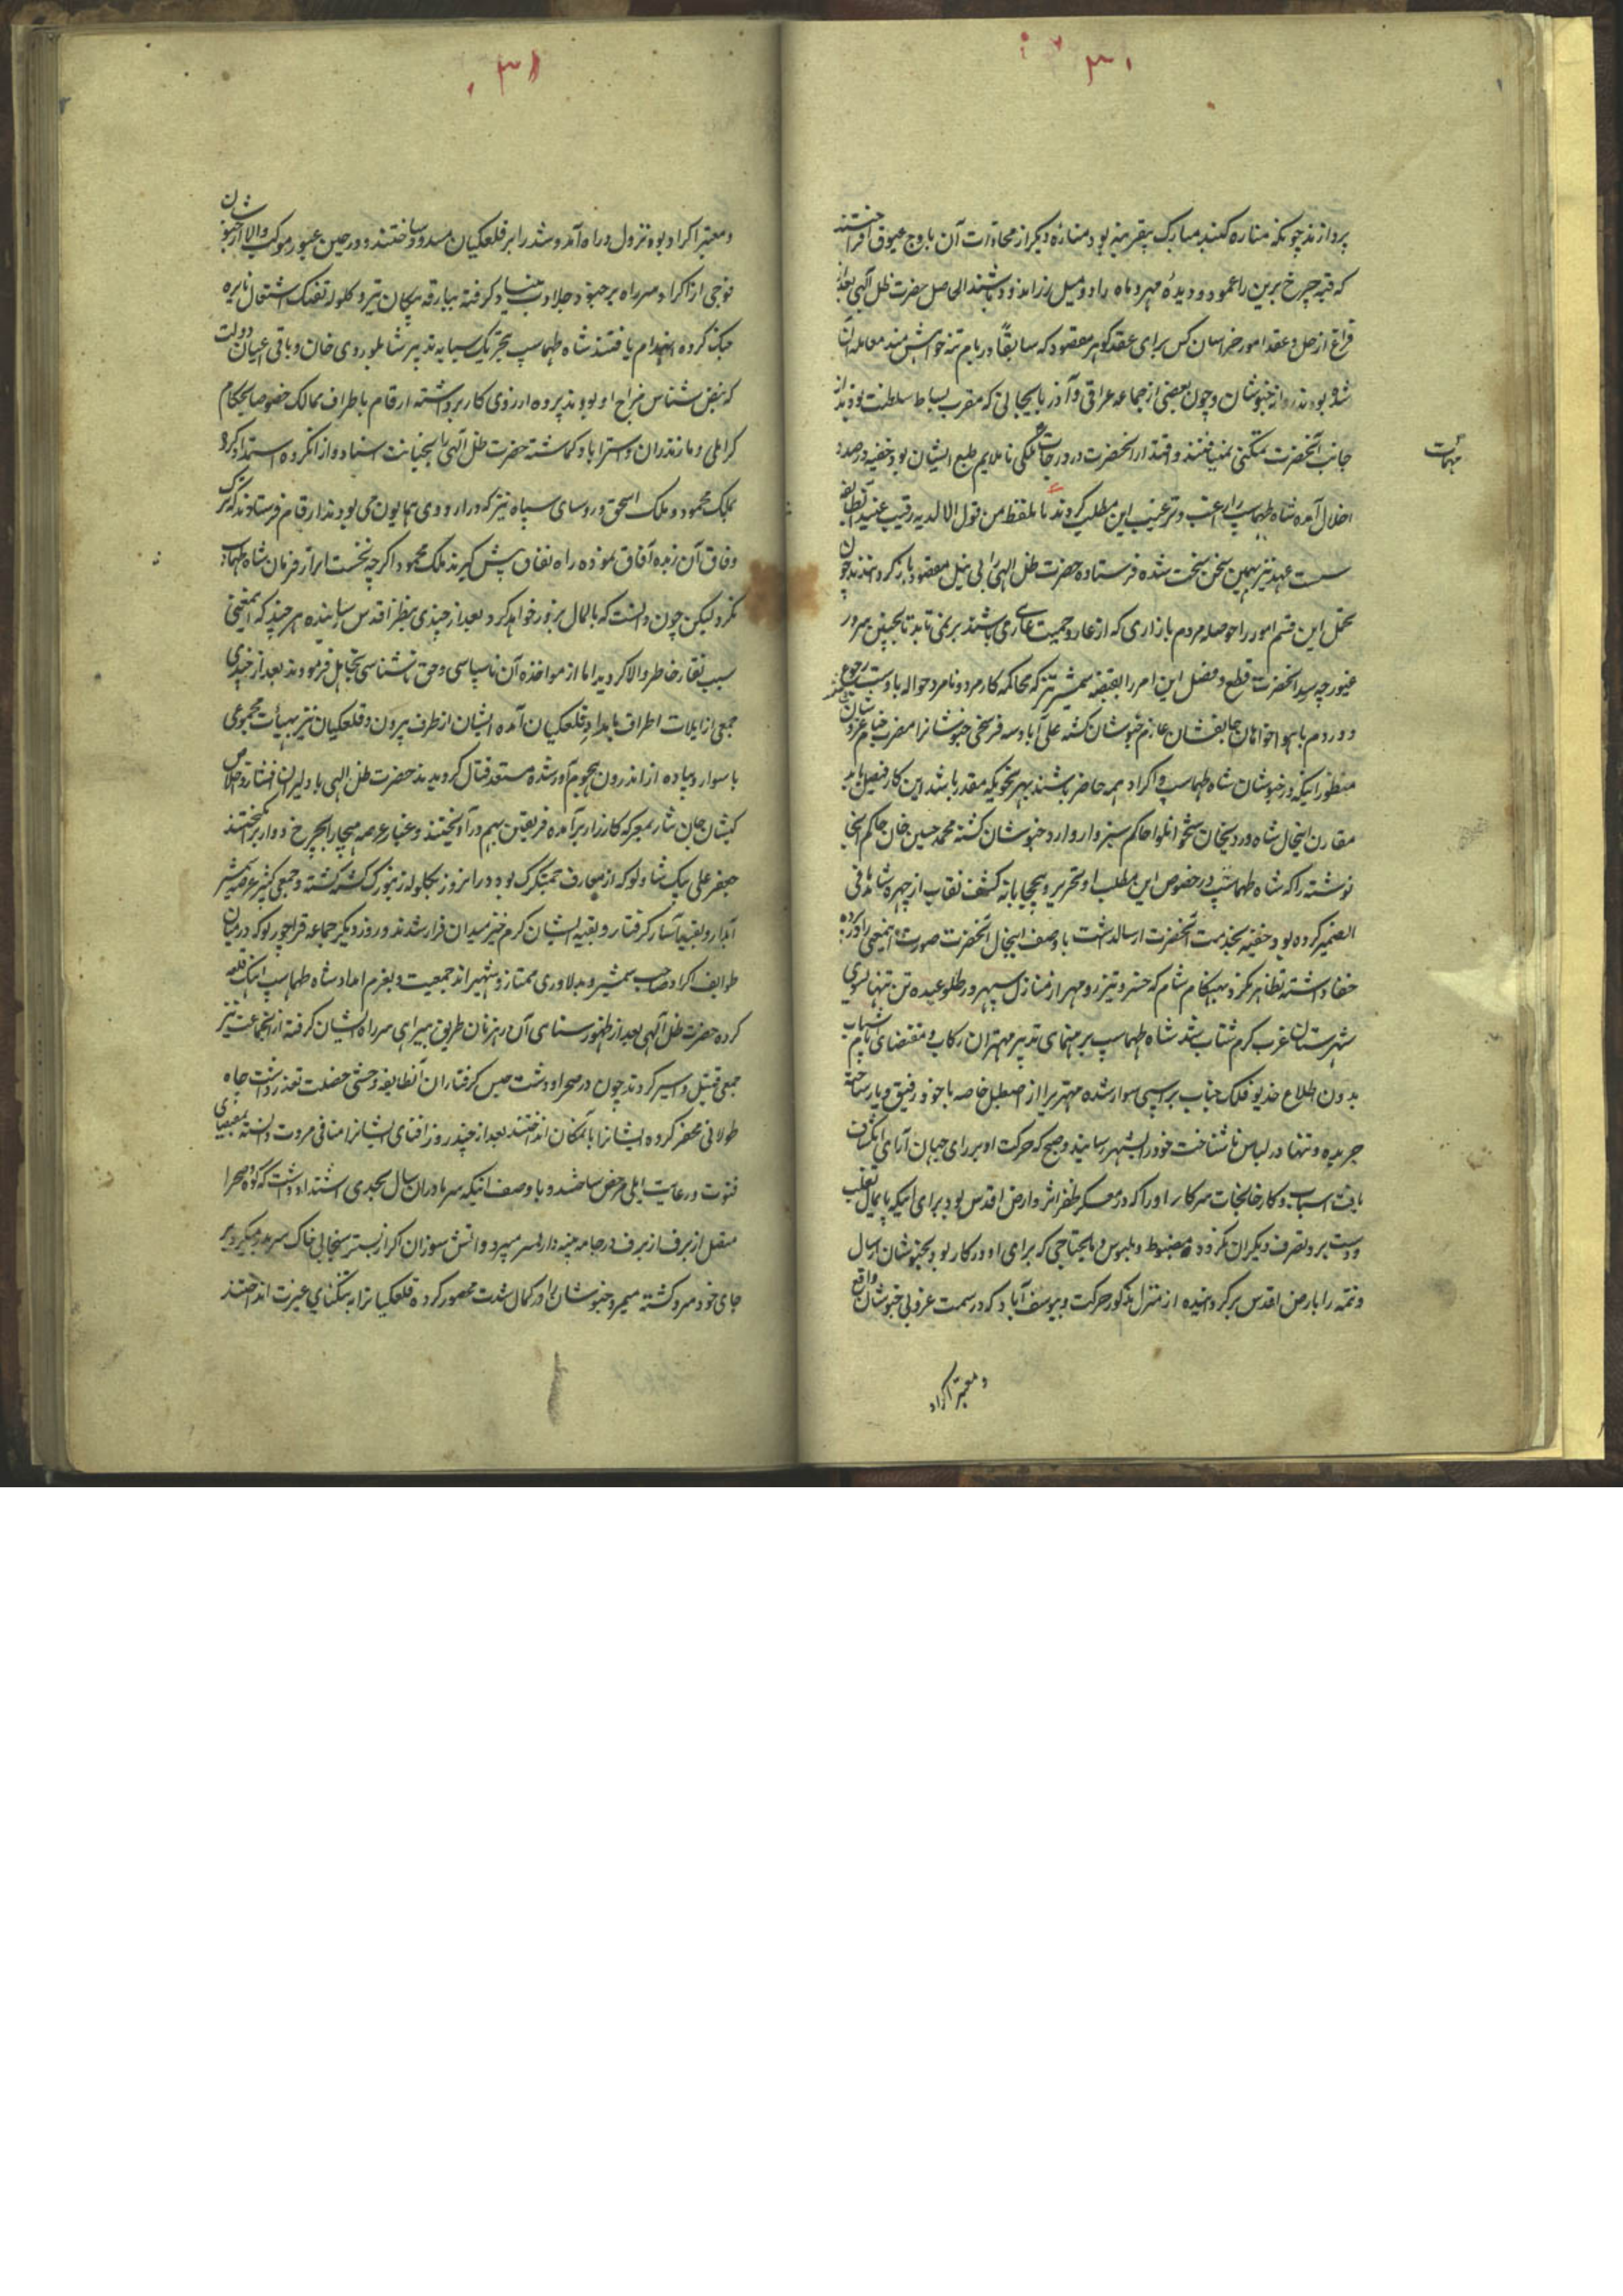 ۳۰
پردازند چونکه مناره گنبد مبارک بیقرینه بود مناره دیگر از محاذات آن باوج عیوق افراختند
که قبه چرخ برین را عمود و دیده مهر و ماه را دو میل زر اندود باشند الی صل حضرت ظل الهی بعد از
فراغ از حل و عقد امور خراسان کس برای عقد گوهر مقصود که سابقاً در بام تنه خواهش مند معامله آن
شده بودند روانه خبوشان و چون بعضی از جماعه عراقی و آذربایجانی که مقرب بساط سلطنت بودند از
جانب آنحضرت تمکنی نمییافتند و اقتدار آنحضرت در درجات ملکی ناملایم طبع ایشان بود خفیه در صدد
مهمات
اخلال آمده شاه طهماسب را راغب و ترغیب این مطلب کردند تا بلفظ من قول الا لدیه رقیب عتید آنطایفه
سست عهد نیز بهمین سخن سخت شده فرستاده حضرت ظل الهی را بی نیل مقصود باز گردانیدند چون
تحمل این قسم امور را حوصله مردم بازاری که از عار و حمیت عاری باشند بر نمی تابد تا بچنین سرور
غیور چه رسد آنحضرت قطع و فصل این امر را بقبضه شمشیر تیز که محاکمه کار مرد و نامرد حواله باوست رجوع
و در دم با هواخواهان جانفشان عازم خبوشان گشته علی آباد سه فرسخی خبوشانرا مضرب خیام عز و شان
منظور اینکه در خبوشان شاه طهماسب و اکراد همه حاضر باشند بهر نحویکه مقدر باشد این کار فیصل یابد
مقارن اینحال شاه ویردیخان شیخوانلو حاکم سبزوار وارد خبوشان گشته محمد حسین خان حاکم آنجا
نوشته را که شاه طهماسب در خصوص این مطلب باو تحریر و بیحجابانه کشف نقاب از چهره شاهد ما فی
الضمیر کرده بود خفیه بخدمت آنحضرت ارسال داشت با وصف اینحال آنحضرت صورت اینمعنی را در پرده
خفا داشته تظاهر نکرد و بهنگام شام که خسرو تیز رو مهر از منازل سپهر در طلوعیده تن تنها بسوی
شهرستان غرب گرم شتاب شد شاه طهماسب برهنمای تدبیر مهتران رکاب و مقتضای ایام شباب
بدون اطلاع خدیو فلک جناب بر اسبی سوار شده مهتری را از اصطبل خاصه با خود رفیق و یار ساخته
جریده و تنها در لباس ناشناخت خود را بشهر رسانید و صبح که حرکت او بر رای جهان آرای انکشاف
یافت اسباب و کارخانجات سرکار او را که در معسکر ظفر اثر و ارض اقدس بود برای اینکه پایمال تغلب
و دستبرد و تصرف دیگران نگردد مضبوط و ملبوس و مایحتاجی که برای او در کار بود بخبوشان ارسال
و تتمه را بارض اقدس برگردانیده از منزل مذکور حرکت و بیوسف آباد که در سمت غربی خبوشان واقع
و معبر اکراد
۳۱
و معبر اکراد بود نزول و راه آمد و شد را بر قلعکیان مسدود ساختند و در حین عبور موکب والا از خبوشان
فوجی از اکراد سر راه بر جنود جلادت بنیاد گرفته ببارقه پیکان تیر و گلوله تفنک اشتعال نایره
جنک کرده انهزام یافتند شاه طهماسب بتحریک سبابه تدبیر شاطوردی خان و باقی اعیان دولت
که نبض شناس مزاج او بودند پرده از روی کار برداشته ارقام باطراف ممالک خصوصا بحکام
گرایلی و مازندران و استراباد گماشته حضرت ظل الهی را بخیانت اسناد و از آنگروه استمداد کرد
بملک محمود و ملک اسحق و روسای سپاه نیز که در اردوی همایون می بودند ارقام فرستادند که ترک
وفاق آن زبده آفاق نموده راه نفاق پیش گیرند ملک محمود اگرچه نخست ابراز فرمان شاه طهماسب
نکرد لیکن چون دانست که بالمال بروز خواهد کرد بعد از چندی بنظر اقدس رسانیده هر چند که اینمعنی
سبب نقار خاطر والا گردید اما از مواخذه آن ناسپاسی و حق ناشناسی تجاهل فرمودند بعد از چندی
جمعی از ایلات اطراف بامداد قلعکیان آمده ایشان از طرف بیرون و قلعکیان نیز بهیأت مجموعی
با سوار و پیاده از اندرون هجوم آور شده مستعد قتال گردیدند حضرت ظل الهی با دلیران
کیشان جان نثار بمعرکه کارزار برآمده فریقین بهم درآویختند و غبار عرصه هیجا را بچرخ دوار برانگیختند
جعفر علی بیک شادلو که از معارف چمشگزک بود در انروز بگلوله زنبورک کشته گشته و جمعی کثیر عرضه شمشیر
آبدار و بقیه آسار گرفتار و بقیه ایشان گرم خیز میدان فرار شدند و روز دیگر جماعه قراچورلو که در میان
طوایف اکراد صاحب شمشیر و بدلاوری ممتاز و شهیر اند جمعیت و بعزم امداد شاه طهماسب آهنک قلعه
کرده حضرت ظل الهی بعد از ظهور سناهی آن رهزنان طریق بیراهی سر راه بر ایشان گرفته از انجماعت نیز
جمعی قتیل و اسیر کردند چون در صحرا و دشت حبس گرفتاران آنطایفه وحشی خصلت تعذر داشت چاه
طولانی حفر کرده ایشانرا بآنمکان انداختند بعد از چند روز افنای ایشانرا منافی مروت دانسته بمقتضای
فتوت و رعایت ایلی مرخص ساختند و با وصف اینکه سرما در ان سال بحدی اشتداد داشت که کوه و صحرا
منقل از برف از برف در جامه پنبه دار بسر میبرد و آتش سوزان اگر از بستر سنجابی خاک سر بدر میکرد بر
جای خود سرد گشته میمرد خبوشان را در کمال شدت محصور کرده قلعکیانرا به تنگنای عبرت انداختند